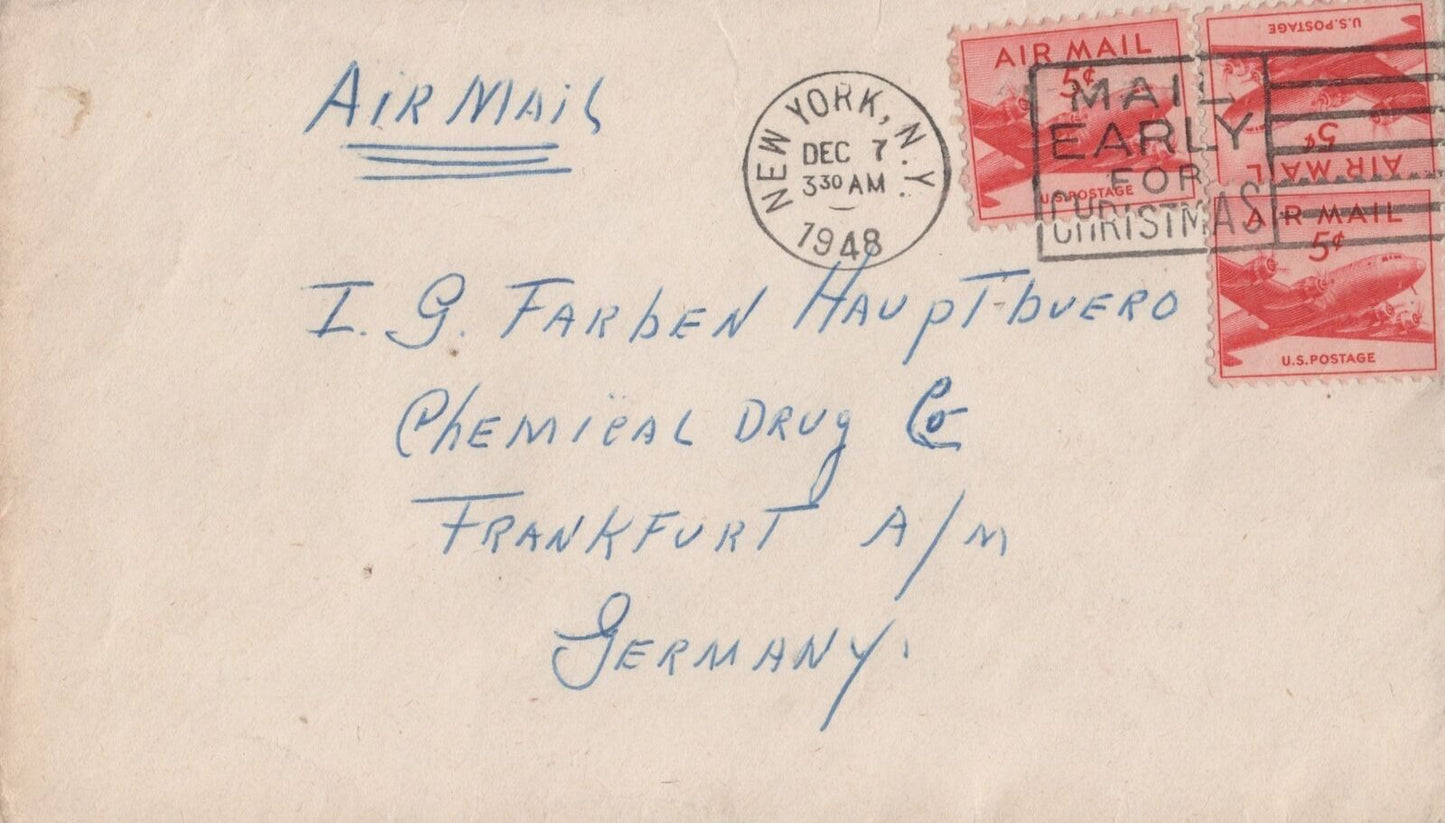 AIR MAIL
NEW YORK, N.Y.
DEC 7
3 30 AM
1948
MAIL
EARLY
FOR
CHRISTMAS
AIR MAIL
5¢
U.S. POSTAGE
U.S. POSTAGE
5¢
AIR MAIL
AIR MAIL
5¢
U.S. POSTAGE
I. G. FARBEN HAUPT-BUERO
CHEMICAL DRUG Co
FRANKFURT A/M
GERMANY.